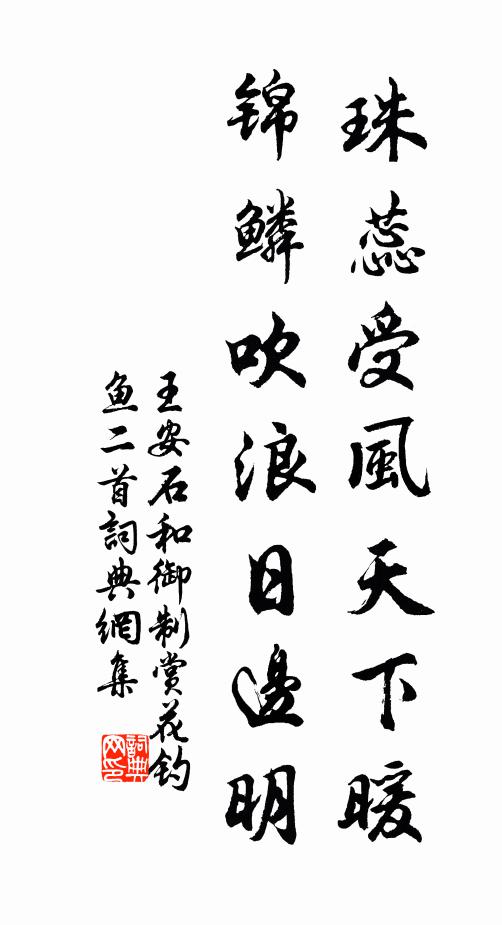 珠蕊受風天下暖
锦鳞吹浪日邊明
王安石和御制赏花钓
鱼二首詞典網集
詞典
网印